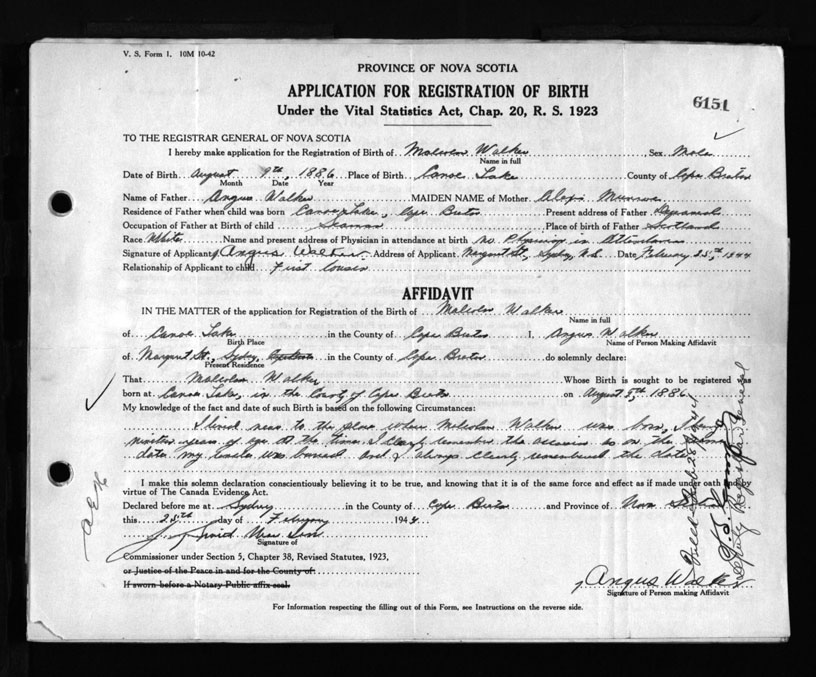 V. S. Form 1. 10M 10-42
PROVINCE OF NOVA SCOTIA
APPLICATION FOR REGISTRATION OF BIRTH
6151
Under the Vital Statistics Act, Chap. 20, R. S. 1923
TO THE REGISTRAR GENERAL OF NOVA SCOTIA
I hereby make application for the Registration of Birth of Malcolm Walker Sex Male
Name in full
Date of Birth August 9th, 1886 Place of Birth Canoe Lake County of Cape Breton
Month Date Year
Name of Father Angus Walker MAIDEN NAME of Mother Munroe
Residence of Father when child was born Canoe Lake, Cape Breton Present address of Father Deceased
Occupation of Father at Birth of child Seaman Place of birth of Father Scotland
Race White Name and present address of Physician in attendance at birth No Physician in Attendance
Signature of Applicant Angus Walker Address of Applicant Margaret St., Sydney, N.S. Date February 25th, 1944
Relationship of Applicant to child First Cousin
AFFIDAVIT
IN THE MATTER of the application for Registration of the Birth of Malcolm Walker
Name in full
of Canoe Lake in the County of Cape Breton I, Angus Walker
Birth Place Name of Person Making Affidavit
of Margaret St., Sydney, in the County of Cape Breton do solemnly declare:
Present Residence
That Malcolm Walker Whose Birth is sought to be registered was
born at Canoe Lake, in the County of Cape Breton on August 1886
My knowledge of the fact and date of such Birth is based on the following Circumstances:
I lived near to the place where Malcolm Walker was born, I being
nineteen years of age at the time. I clearly remember the occasion as on the same
date my was and I always clearly remembered the date
I make this solemn declaration conscientiously believing it to be true, and knowing that it is of the same force and effect as if made under oath and by
virtue of The Canada Evidence Act.
Declared before me at Sydney in the County of Cape Breton and Province of Nova Scotia
this 25th day of February 1944
Signature of
Commissioner under Section 5, Chapter 38, Revised Statutes, 1923,
or Justice of the Peace in and for the County of
If sworn before a Notary Public affix seal.
Angus Walker
Signature of Person making Affidavit
For Information respecting the filling out of this Form, see Instructions on the reverse side.
Deputy Registrar General